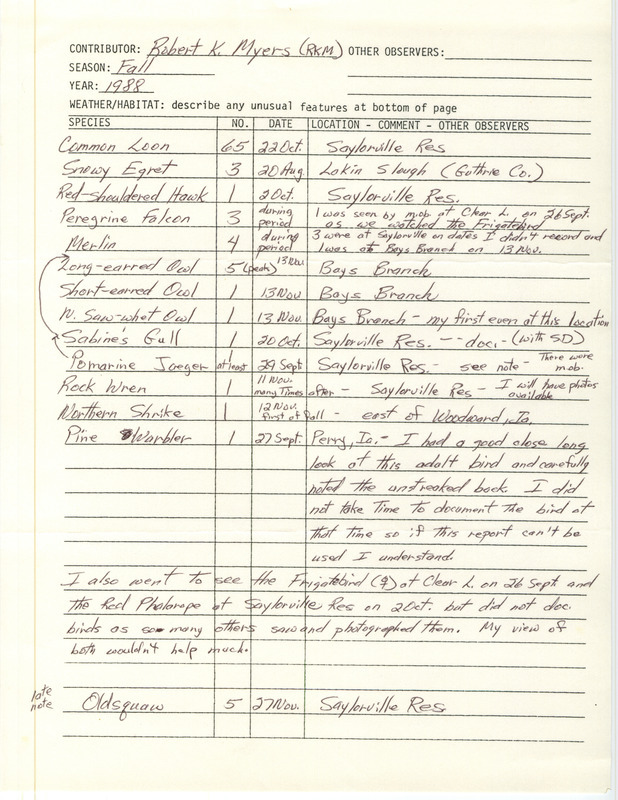 CONTRIBUTOR: Robert K. Myers (RKM) OTHER OBSERVERS:
SEASON: Fall
YEAR: 1988
WEATHER/HABITAT: describe any unusual features at bottom of page
SPECIES NO. DATE LOCATION - COMMENT - OTHER OBSERVERS
Common Loon 65 22 Oct. Saylorville Res
Snowy Egret 3 20 Aug. Lakin Slough (Guthrie Co.)
Red-shouldered Hawk 1 2 Oct. Saylorville Res.
Peregrine Falcon 3 during period 1 was seen by m.ob. at Clear L. on 26 Sept. as we watched the Frigatebird
Merlin 4 during period 3 were at Saylorville on dates I didn't record and 1 was at Bays Branch on 13 Nov.
Long-earred Owl 5 (peak) 13 Nov Bays Branch
Short-earred Owl 1 13 Nov Bays Branch
N. Saw-whet Owl 1 13 Nov. Bays Branch - my first ever at this location
Sabine's Gull 1 20 Oct. Saylorville Res. -- doc. - (with SD)
Pomarine Jaeger at least 1 29 Sept Saylorville Res. - see note - There were m.ob.
Rock Wren 1 11 Nov. many Times after - Saylorville Res - I will have photos available
Northern Shrike 1 12 Nov. first of fall - east of Woodward, Ia.
Pine Warbler 1 27 Sept. Perry, Ia. - I had a good close long
look at this adalt bird and carefully
noted the unstreaked back. I did
not take Time to document the bird at
that time so if this report can't be
used I understand.
I also went to see the Frigatebird (♀) at Clear L. on 26 Sept and
the Red Phalarope at Saylorville Res on 2 Oct. but did not doc.
birds as so many others saw and photographed them. My view of
both wouldn't help much.
late note Oldsquaw 5 27 Nov. Saylorville Res.